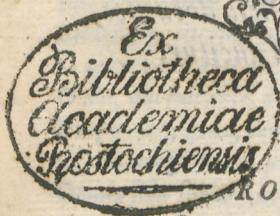 Ex
Bibliotheca
Academiae
Rostochiensis
RO